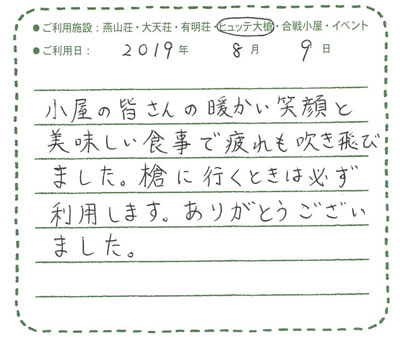 ●ご利用施設：燕山荘・大天荘・有明荘・ヒュッテ大槍・合戦小屋・イベント
●ご利用日： 2019年 8月 9日
小屋の皆さんの暖かい笑顔と
美味しい食事で疲れも吹き飛び
ました。槍に行くときは必ず
利用します。ありがとうござい
ました。